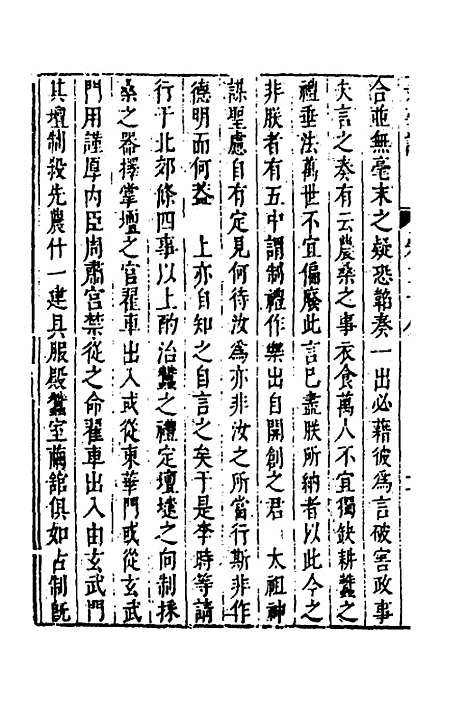 合並無毫末之疑恐韜奏一出必藉彼為言破害政事
夫言之奏有云農桑之事衣食萬人不宜獨缺耕蠶之
禮垂法萬世不宜偏廢此言已盡朕所納者以此今之
非朕者有五中謂制禮作樂出自開創之君　太祖神
謀聖慮自有定見何待汝為亦非汝之所當行斯非作
德明而何葢　上亦自知之自言之矣于是李時等請
行于北郊條四事以上酌治蠶之禮定壇壝之向制採
桑之器擇掌壇之官翟車出入或從東華門或從玄武
門用謹厚内臣周肅宮禁從之命翟車出入由玄武門
其壇制殺先農什一建具服殿蠶室繭舘俱如古制旣